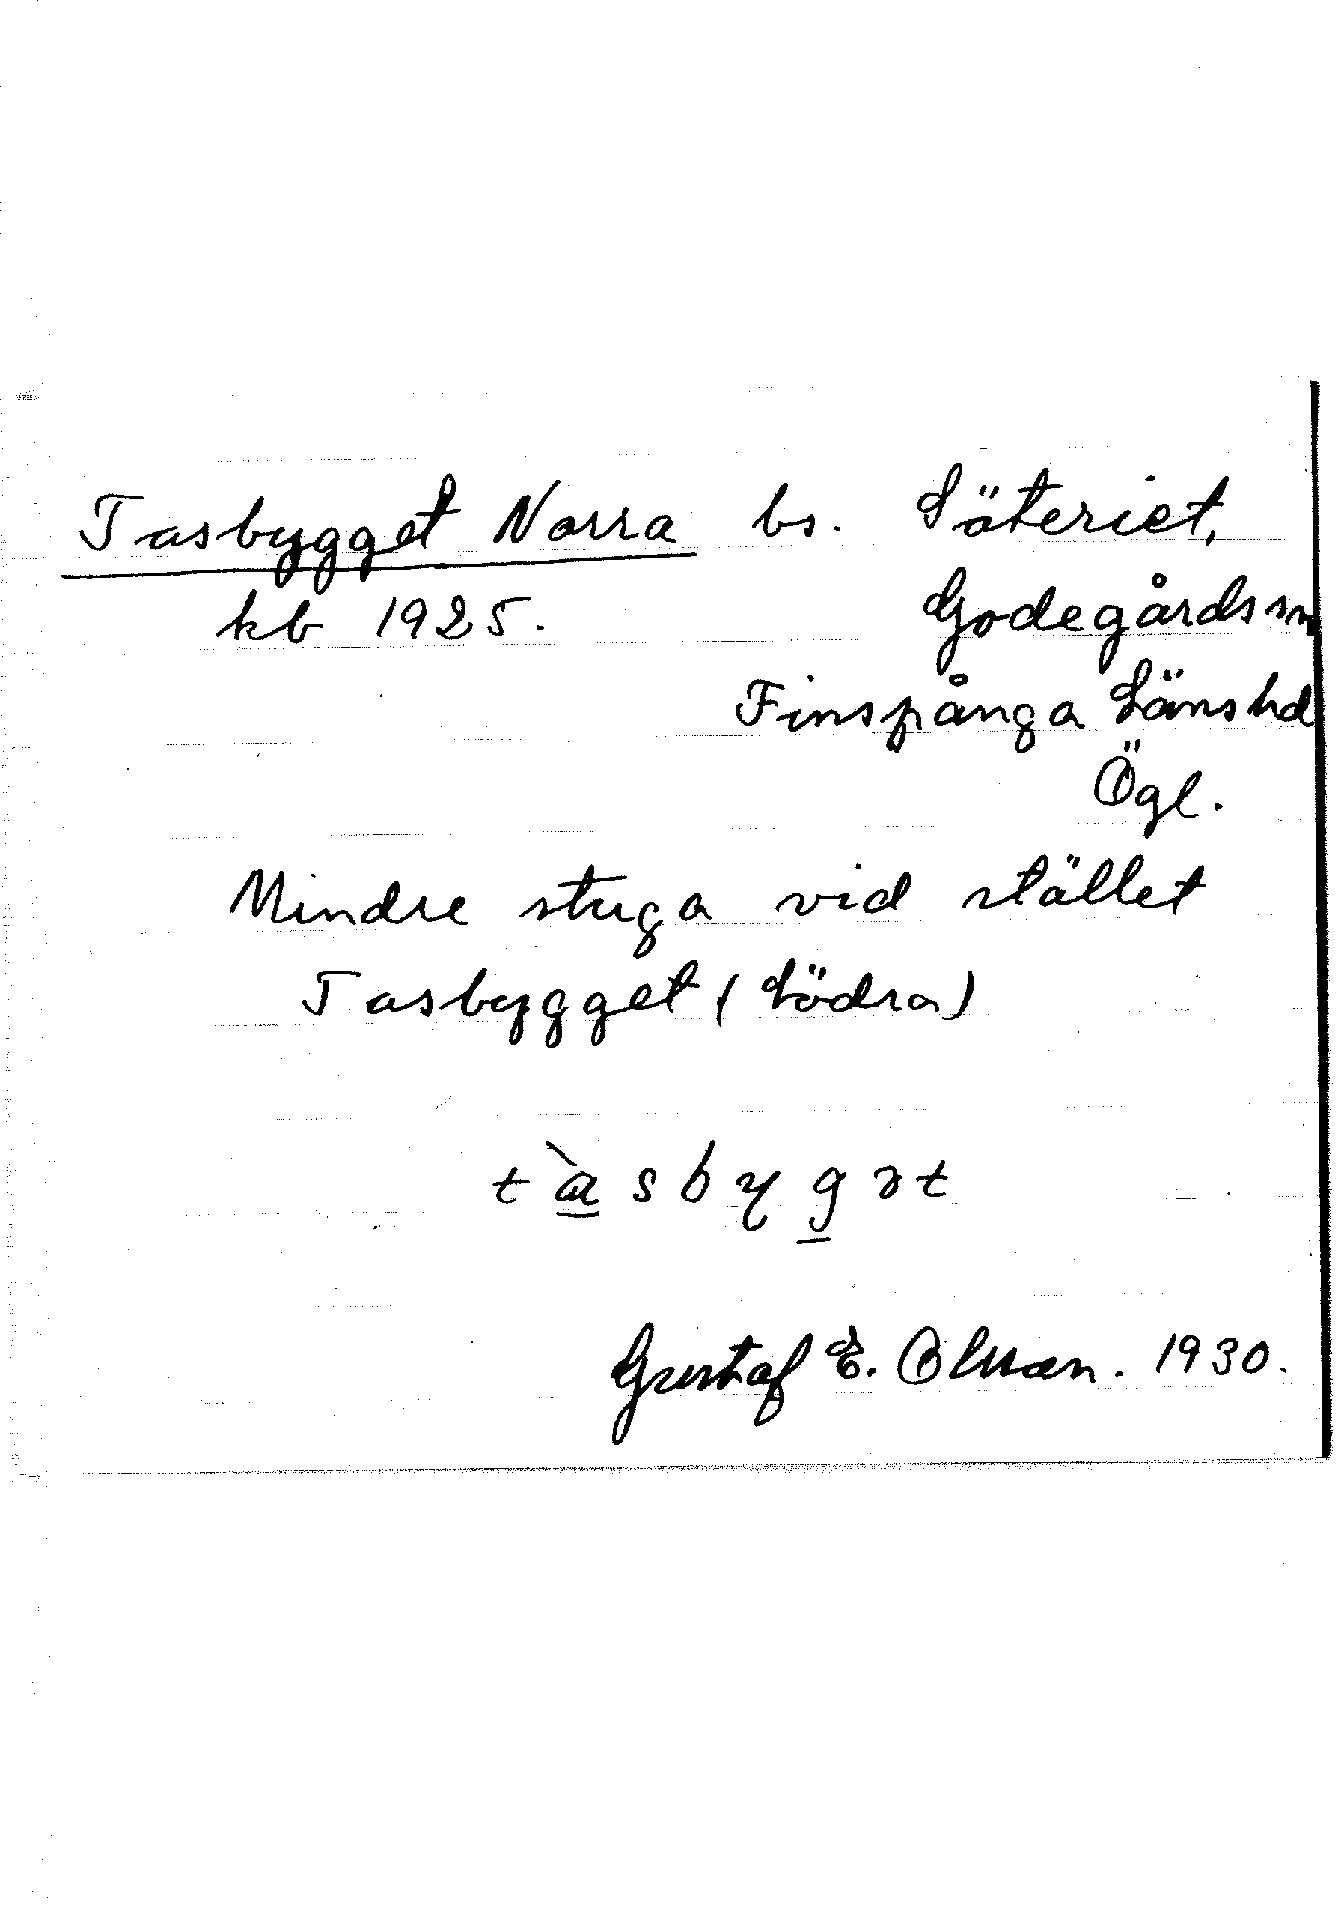 Tasbygget Norra bs. Säteriet,
kb 1925. Godegårds sn
Finspånga Länshd
Ögl.
Mindre stuga vid stället
Tasbygget (Södra)
tàsbygət
Gustaf E. Olsson. 1930.